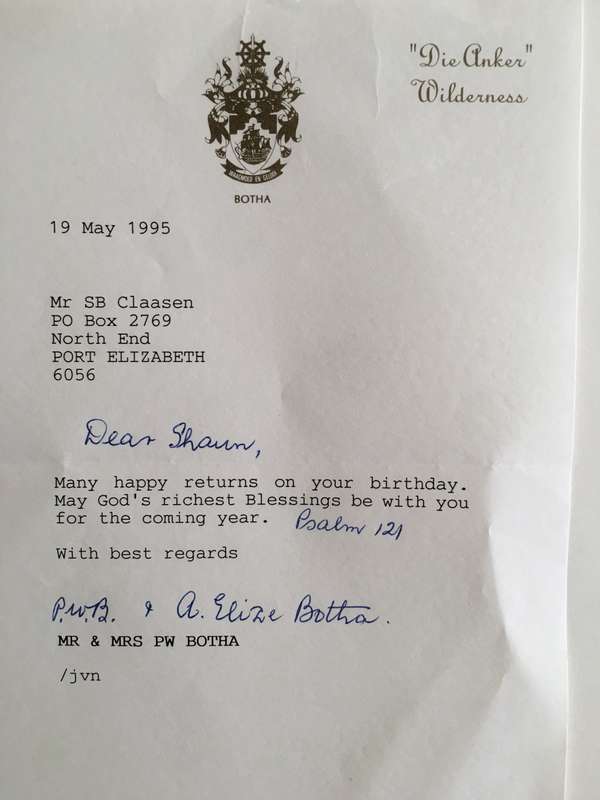 "Die Anker"
Wilderness
BOTHA
19 May 1995
Mr SB Claasen
PO Box 2769
North End
PORT ELIZABETH
6056
Dear Shaun,
Many happy returns on your birthday.
May God's richest Blessings be with you
for the coming year. Psalm 121
With best regards
P.W.B. & A. Elize Botha.
MR & MRS PW BOTHA
/jvn